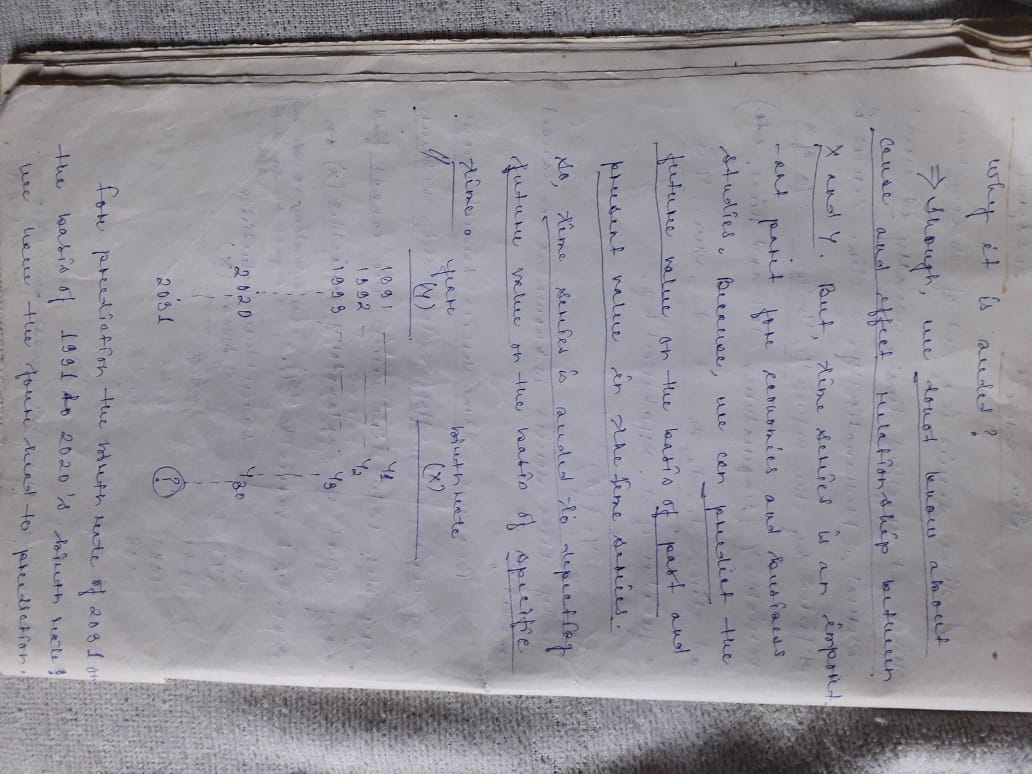 Why it is needed?
⇒ Though, we donot know about
cause and effect relationship between
X and Y. But, time series is an import
-ant point for economics and business
studies. Because, we can predict the
future value on the basis of past and
present value in the time series.
So, time series is needed to
future value on the basis of specific
time.
year (Y) birth rate (X)
1991 Y1
1992 Y2
1993 Y3
2020 Y30
2031 ?
For prediction the birth rate of 2031 on
the basis of 1991 to 2020's birth rate
we have the to prediction.